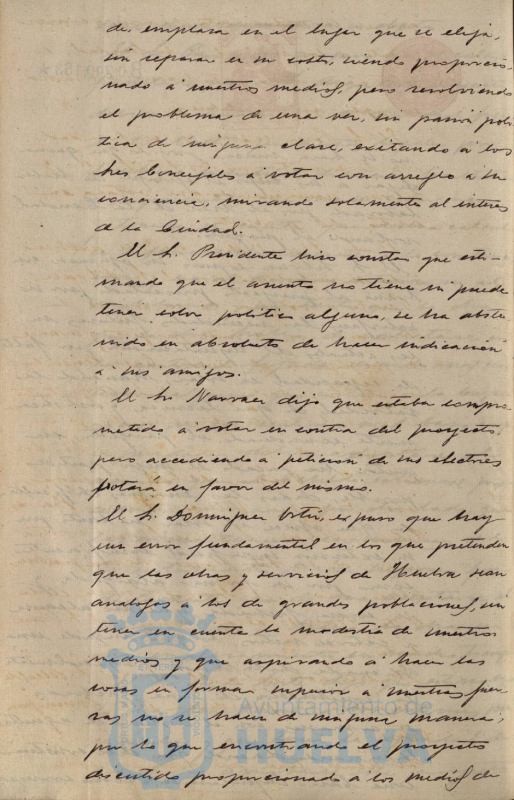 de, emplasa en el lugar que se elija,
sin reparar en su costo, siendo proporcio-
nado á nuestros medios, pero resolviendo
el problema de una vez, sin pasión polí-
tica de ninguna clase, exitando á los
Sres Concejales á votar con arreglo á su
conciencia, mirando solamente al interes
de la Ciudad.
El Sr. Presidente hizo constar que esti-
mando que el asunto no tiene ni puede
tener color politico alguno, se ha abste-
nido en absoluto de hacer indicación
á sus amigos.
El Sr. Narvaez dijo que estaba compro-
metido á votar en contra del proyecto,
pero accediendo á petición de sus electores
votará en favor del mismo.
El Sr. Dominguez Ortiz, expuso que hay
un error fundamental en los que pretenden
que las obras y servicios de Huelva sean
analogos á los de grandes poblaciones, sin
tener en cuenta la modestia de nuestros
medios y que aspirando á hacer las
cosas en forma superior á nuestras fuer-
zas no se hacen de ninguna manera,
por lo que encontrando el proyecto
discutido proporcionado á los medios de
Ayuntamiento de
HUELVA